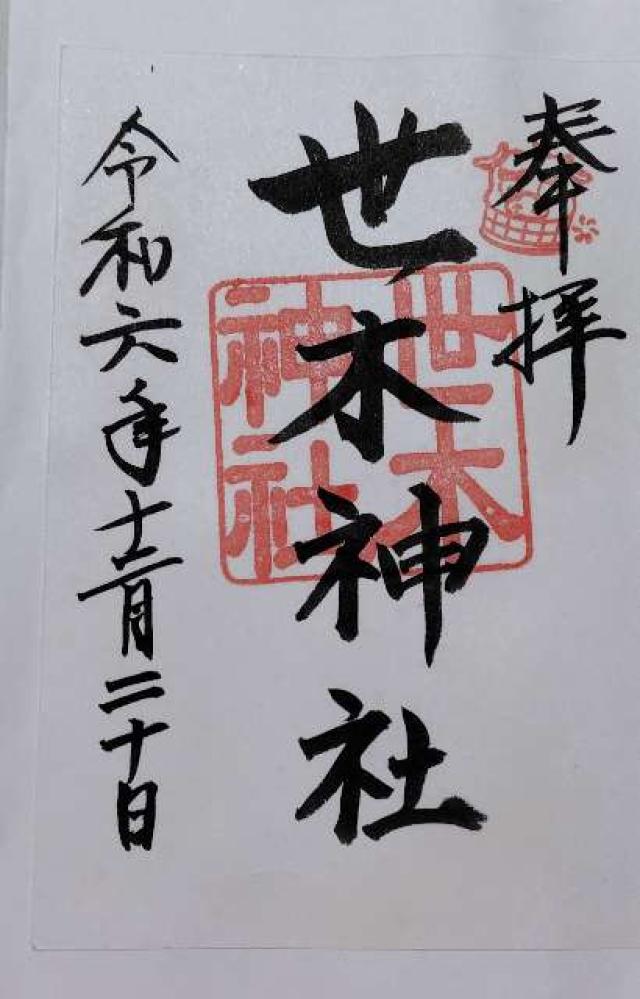 奉拝
世木神社
世木神社
令和六年十二月二十日